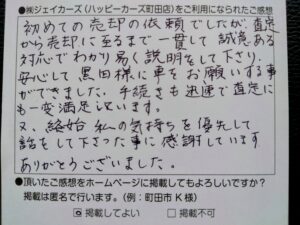 ●㈱ジェイカーズ(ハッピーカーズ町田店)をご利用になられたご感想
初めての売却の依頼でしたが、査定
から売却に至るまで一貫して誠意ある
対応でわかり易く説明をして下さり、
安心して黒田様に車をお願いする事
ができました。手続きも迅速で査定に
も一変満足しています。
又、終始私の気持ちを優先して
話をして下さった事に感謝しています
ありがとうございました。
●頂いたご感想をホームページに掲載してもよろしいですか?
掲載は匿名で行います。(例:町田市 K様)
掲載してよい 掲載不可